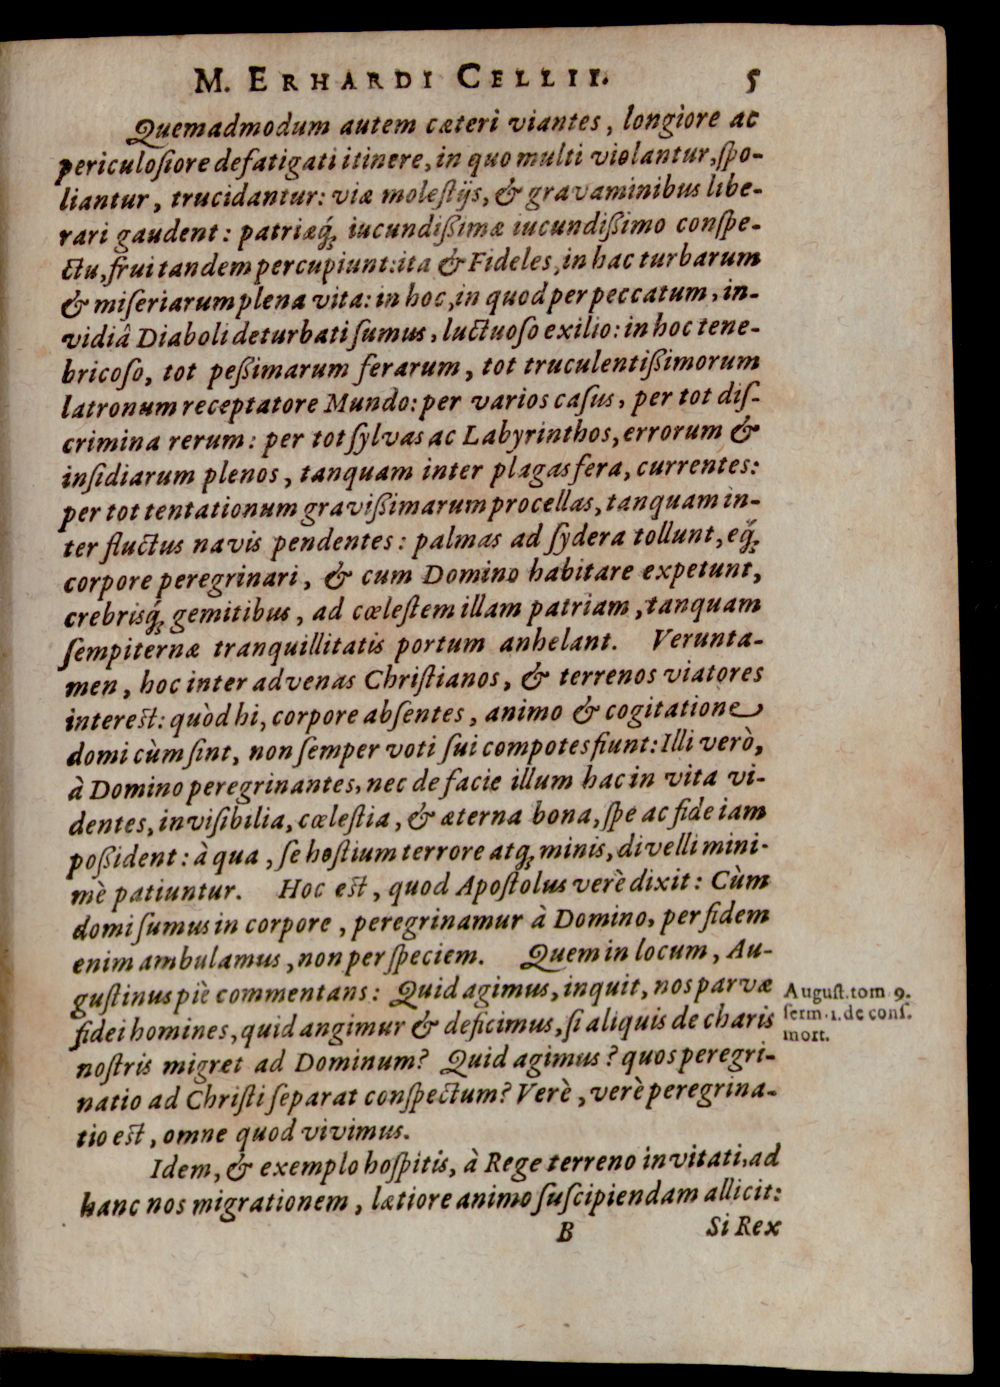 M. ERHARDI CELLII. 5
Quemadmodum autem cæteri viantes, longiore ac
periculoſiore defatigati itinere, in quo multi violantur, ſpo-
liantur, trucidantur: viæ moleſtijs, & gravaminibus libe-
rari gaudent: patriæq́ꝫ iucundißimæ iucundißimo conſpe-
ctu, frui tandem percupiunt: ita & Fideles, in hac turbarum
& miſeriarum plena vita: in hoc, in quod per peccatum, in-
vidiâ Diaboli deturbati ſumus, luctuoſo exilio: in hoc tene-
bricoſo, tot peßimarum ferarum, tot truculentißimorum
latronum receptatore Mundo: per varios caſus, per tot diſ-
crimina rerum: per tot ſylvas ac Labyrinthos, errorum &
inſidiarum plenos, tanquam inter plagas fera, currentes:
per tot tentationum gravißimarum procellas, tanquam in-
ter fluctus navis pendentes: palmas ad ſydera tollunt, eq́ꝫ
corpore peregrinari, & cum Domino habitare expetunt,
crebrisq́ꝫ gemitibus, ad cœleſtem illam patriam, tanquam
ſempiternæ tranquillitatis portum anhelant. Verunta-
men, hoc inter advenas Chriſtianos, & terrenos viatores
intereſt: quòd hi, corpore abſentes, animo & cogitatione
domi cùm ſint, non ſemper voti ſui compotes fiunt: Illi verò,
à Domino peregrinantes, nec de facie illum hac in vita vi-
dentes, inviſibilia, cœleſtia, & æterna bona, ſpe ac fide iam
poßident: à qua, ſe hoſtium terrore atqꝫ minis, divelli mini-
mè patiuntur. Hoc eſt, quod Apoſtolus verè dixit: Cùm
domi ſumus in corpore, peregrinamur à Domino, per fidem
enim ambulamus, non per ſpeciem. Quem in locum, Au-
guſtinus piè commentans: Quid agimus, inquit, nos parvæ
fidei homines, quid angimur & deficimus, ſi aliquis de charis
noſtris migret ad Dominum? Quid agimus? quos peregri-
natio ad Chriſti ſeparat conſpectum? Verè, verè peregrina-
tio eſt, omne quod vivimus.
Idem, & exemplo hoſpitis, à Rege terreno invitati, ad
hanc nos migrationem, lætiore animo ſuſcipiendam allicit:
B Si Rex
Auguſt. tom 9.
ſerm. 1. de conſ.
mort.